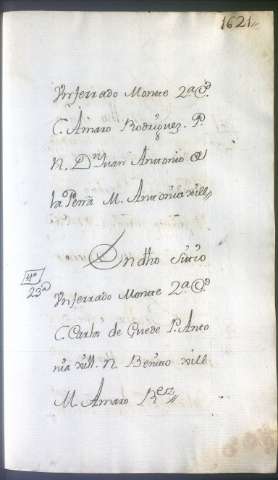 1621
Vn ferrado Monte 2ª Cᵈ
C. Amaro Rodriguez. P.
N. Dⁿ Juan Antonio a
la Peña M. Antonia vill
En dho Sitio
Nº
23ª
Vn ferrado Monte 2ª Cᵈ
C. Carlos de Guede P. Anto
nia vill. N. Benito vill
M. Amaro Rez